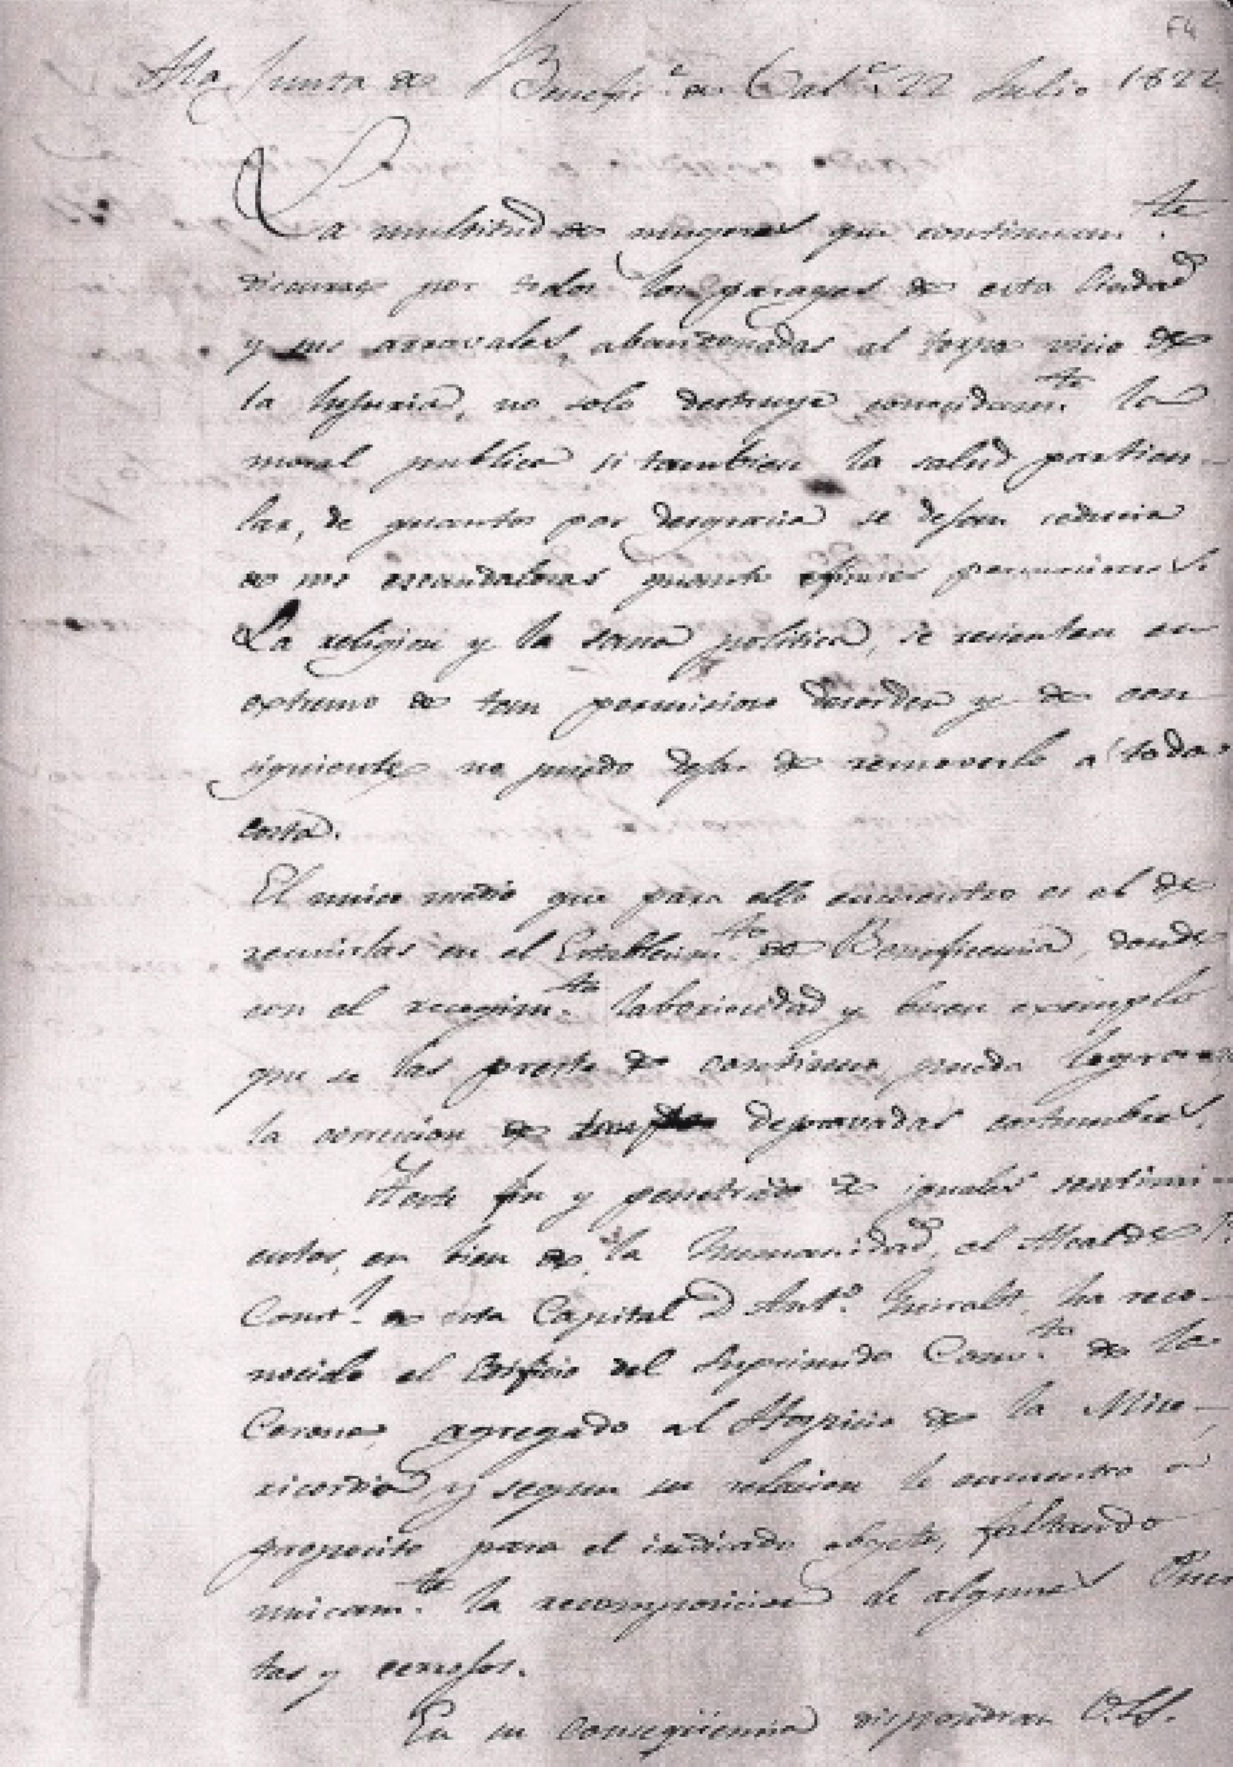 F4
A la Junta de Benefi.ª de Val.ª 22 Julio 1822
La multitud de mugeres que continuam.te
discurre por todos los parages de esta Ciudad
y sus arravales, abandonadas al torpe vicio de
la lujuria, no solo destruye conocidam.te la
moral publica si tambien la salud particu-
lar, de quantos por desgracia se dejan seducir
de sus escandalosas quanto persuaciones.
La religion y la sana politica, se resienten en
extremo de tan pernicioso desorden y de con
siguiente no puedo dejar de removerlo a toda
costa.
El unico medio que para ello encuentro es el de
reunirlas en el Establecim.to de Beneficencia, donde
con el recogim.to laboriosidad y buen exemplo
que se las preste de continuo, pueda lograrse
la correccion de tan depravadas costumbres.
A este fin y penetrado de iguales sentimi-
entos, en bien de la humanidad, el Alcalde 1.º
Const.l de esta Capital D Ant.º Guiralt, ha reco-
nocido el Edificio del Suprimido Conv.to de la
Corona, agregado al Hospicio de la Mise-
ricordia, y segun su relacion le encuentro a
proposito para el indicado objeto, faltando
unicam.te la recomposicion de algunas Puer
tas y cerrojos.
En su conseqüencia dispondran V.SS.